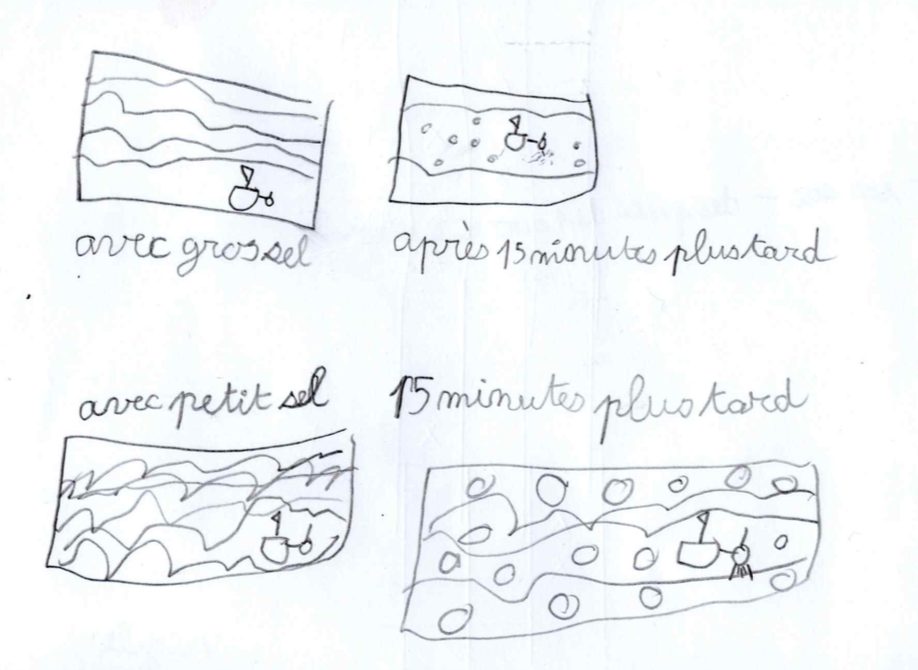 avec gros sel
après 15 minutes plus tard
avec petit sel
15 minutes plus tard